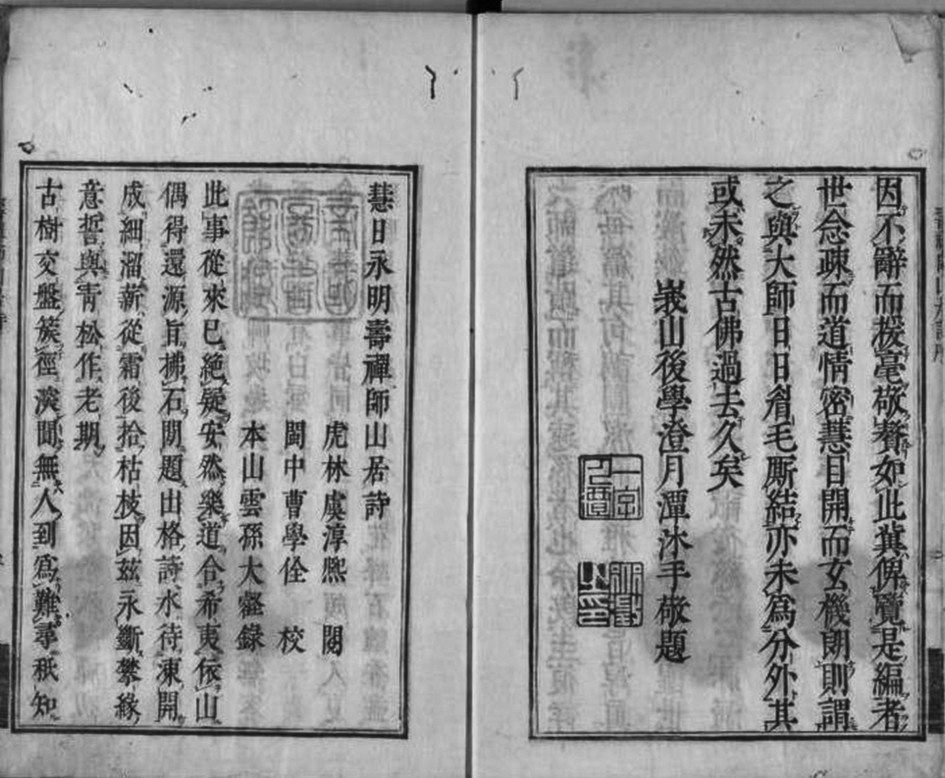 因不辭而援毫敬賡如此冀俾覽是編者
世念疎而道情密慧目開而玄機朗則謂
之與大師日日眉毛厮結亦未為分外其
或未然古佛過去久矣
峩山後學澄月潭沐手敬題
慧日永明壽禪師山居詩
虎林虞淳熈閱
閩中曹學佺校
本山雲孫大壑錄
此事從來已絶疑安然樂道合希夷依山
偶得還源旨拂石閒題出格詩水待凍開
成細溜薪從霜後拾枯枝因茲永斷攀緣
意誓與青松作老期
古樹交盤簇徑深聞無人到為難尋秖知